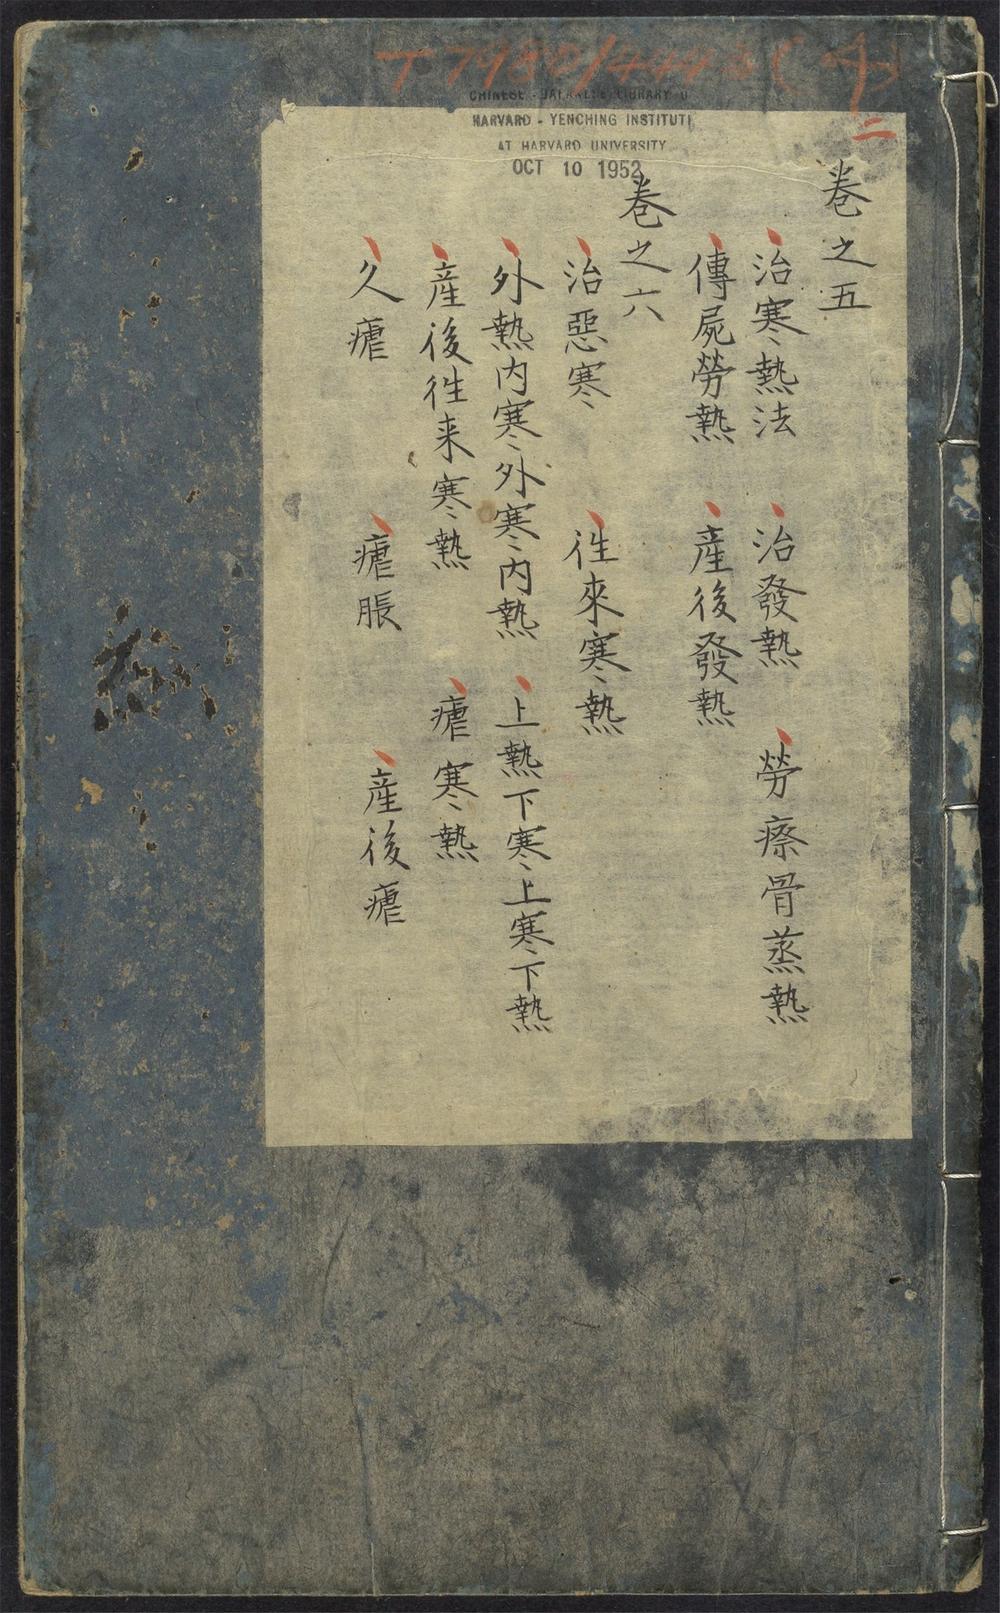 T 7980/4448 (4)
CHINESE - JAPANESE LIBRARY O
HARVARD - YENCHING INSTITUTI
AT HARVARD UNIVERSITY
OCT 10 1952
二
卷之五
治寒熱法 治發熱 勞瘵骨蒸熱
傳屍勞熱 產後發熱
卷之六
治惡寒 徃來寒熱
外熱內寒外寒內熱 上熱下寒上寒下熱
產後徃来寒熱 瘧寒熱
久瘧 瘧脹 產後瘧